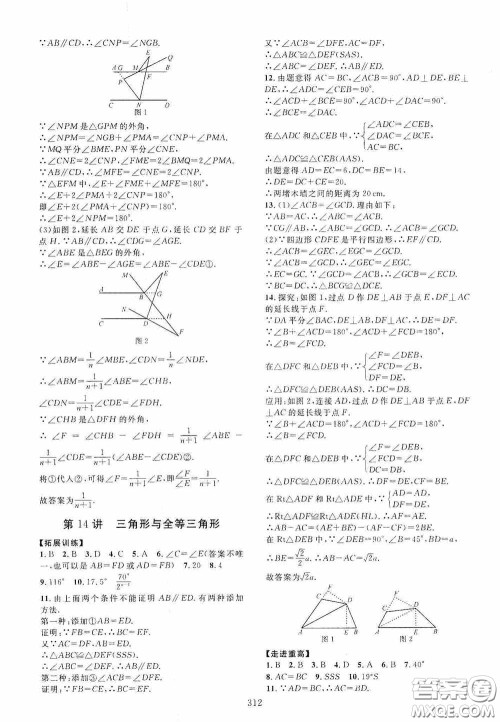 ∵AB∥CD,∴∠CNP=∠NGB.
图1
∵∠NPM是△GPM的外角,
∴∠NPM=∠NGP+∠PMA=∠CNP+∠PMA.
∵MQ平分∠BME,PN平分∠CNE,
∴∠CNE=2∠CNP,∠FME=2∠BMQ=2∠PMA.
∵AB∥CD,∴∠MFE=∠CNE=2∠CNP.
∵△EFM中,∠E+∠FME+∠MFE=180°,
∴∠E+2∠PMA+2∠CNP=180°.
即∠E+2(∠PMA+∠CNP)=180°.
∴∠E+2∠NPM=180°.
(3)如图2,延长AB交DE于点G,延长CD交BF于
点H.∵AB∥CD,∴∠CDG=∠AGE.
∵∠ABE是△BEG的外角,
∴∠E=∠ABE-∠AGE=∠ABE-∠CDE①.
图2
∵∠ABM=1/n∠MBE,∠CDN=1/n∠NDE,
∴∠ABM=1/(n+1)∠ABE=∠CHB,
∠CDN=1/(n+1)∠CDE=∠FDH.
∵∠CHB是△DFH的外角,
∴∠F=∠CHB-∠FDH=1/(n+1)∠ABE-
1/(n+1)∠CDE=1/(n+1)(∠ABE-∠CDE)②.
将①代入②,可得∠F=1/(n+1)∠E,即∠F/∠E=1/(n+1).
故答案为1/(n+1).
第14讲 三角形与全等三角形
【拓展训练】
1.B 2.B 3.D 4.A 5.D 6.∠C=∠E(答案不唯
一,也可以是AB=FD或AD=FB) 7.20 8.4
9.116° 10.17.5° 70°/2ⁿ⁻²
11.由上面两个条件不能证明AB∥ED.有两种添加
方法.
第一种:添加①AB=ED.
证明:∵FB=CE,∴BC=EF.
又∵AC=DF,AB=ED,
∴△ABC≌△DEF(SSS).
∴∠ABC=∠DEF.∴AB∥ED.
第二种:添加③∠ACB=∠DFE.
证明:∵FB=CE,∴BC=EF.
又∵∠ACB=∠DFE,AC=DF,
∴△ABC≌△DEF(SAS).
∴∠ABC=∠DEF.∴AB∥ED.
12.由题意得AC=BC,∠ACB=90°,AD⊥DE,BE⊥
DE.∴∠ADC=∠CEB=90°.
∴∠ACD+∠BCE=90°,∠ACD+∠DAC=90°.
∴∠BCE=∠DAC.
在△ADC和△CEB中,∵{∠ADC=∠CEB,
∠DAC=∠BCE,
AC=CB,
∴△ADC≌△CEB(AAS).
由题意得AD=EC=6,DC=BE=14.
∴DE=DC+CE=20.
∴两堵木墙之间的距离为20 cm.
13.(1)CG=CE.理由如下:
∵CG∥AB,∴∠ACG=∠BAC.
∵∠ACE=∠BAC,∴∠ACE=∠ACG.
∵(2)∵四边形CDFE是平行四边形,∴EF∥CD.
∴∠ACG=∠CGE.
∵∠ACE=∠ACG,∴∠ACE=∠CGE.
∴EC=GC.∵EC=DF,∴CG=DF.
14.探究:如图1,过点D作DE⊥AB于点E,DF⊥AC
的延长线于点F.
∵DA平分∠BAC,DE⊥AB,DF⊥AC,∴DE=DF.
∵∠B+∠ACD=180°,∠ACD+∠FCD=180°,
∴∠B=∠FCD.
在△DFC和△DEB中,∵{∠F=∠DEB,
∠FCD=∠B,
DF=DE,
∴△DFC≌△DEB(AAS).∴DC=DB.
应用:如图2,连接AD,过点D作DE⊥AB于点E,DF
⊥AC的延长线于点F.
∵∠B+∠ACD=180°,∠ACD+∠FCD=180°,
∴∠B=∠FCD.
在△DFC和△DEB中,∵{∠F=∠DEB,
∠FCD=∠B,
DC=DB,
∴△DFC≌△DEB(AAS).∴DF=DE,CF=BE.
在Rt△ADF和Rt△ADE中,∵{AD=AD,
DF=DE,
∴Rt△ADF≌Rt△ADE(HL).∴AF=AE.
图1
图2
故答案为√2a.
【走进重高】
1.B 2.B 3.B 4.D 5.B 6.B 7.40°
8.AC=BC 9.SSS 10.19°
312